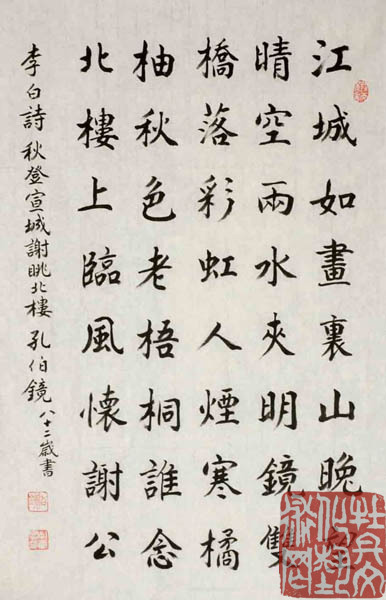 江城如畫裏山晚望
晴空兩水夾明鏡雙
橋落彩虹人煙寒橘
柚秋色老梧桐誰念
北樓上臨風懷謝公
李白詩 秋登宣城謝眺北樓 孔伯鏡 八十二歲書